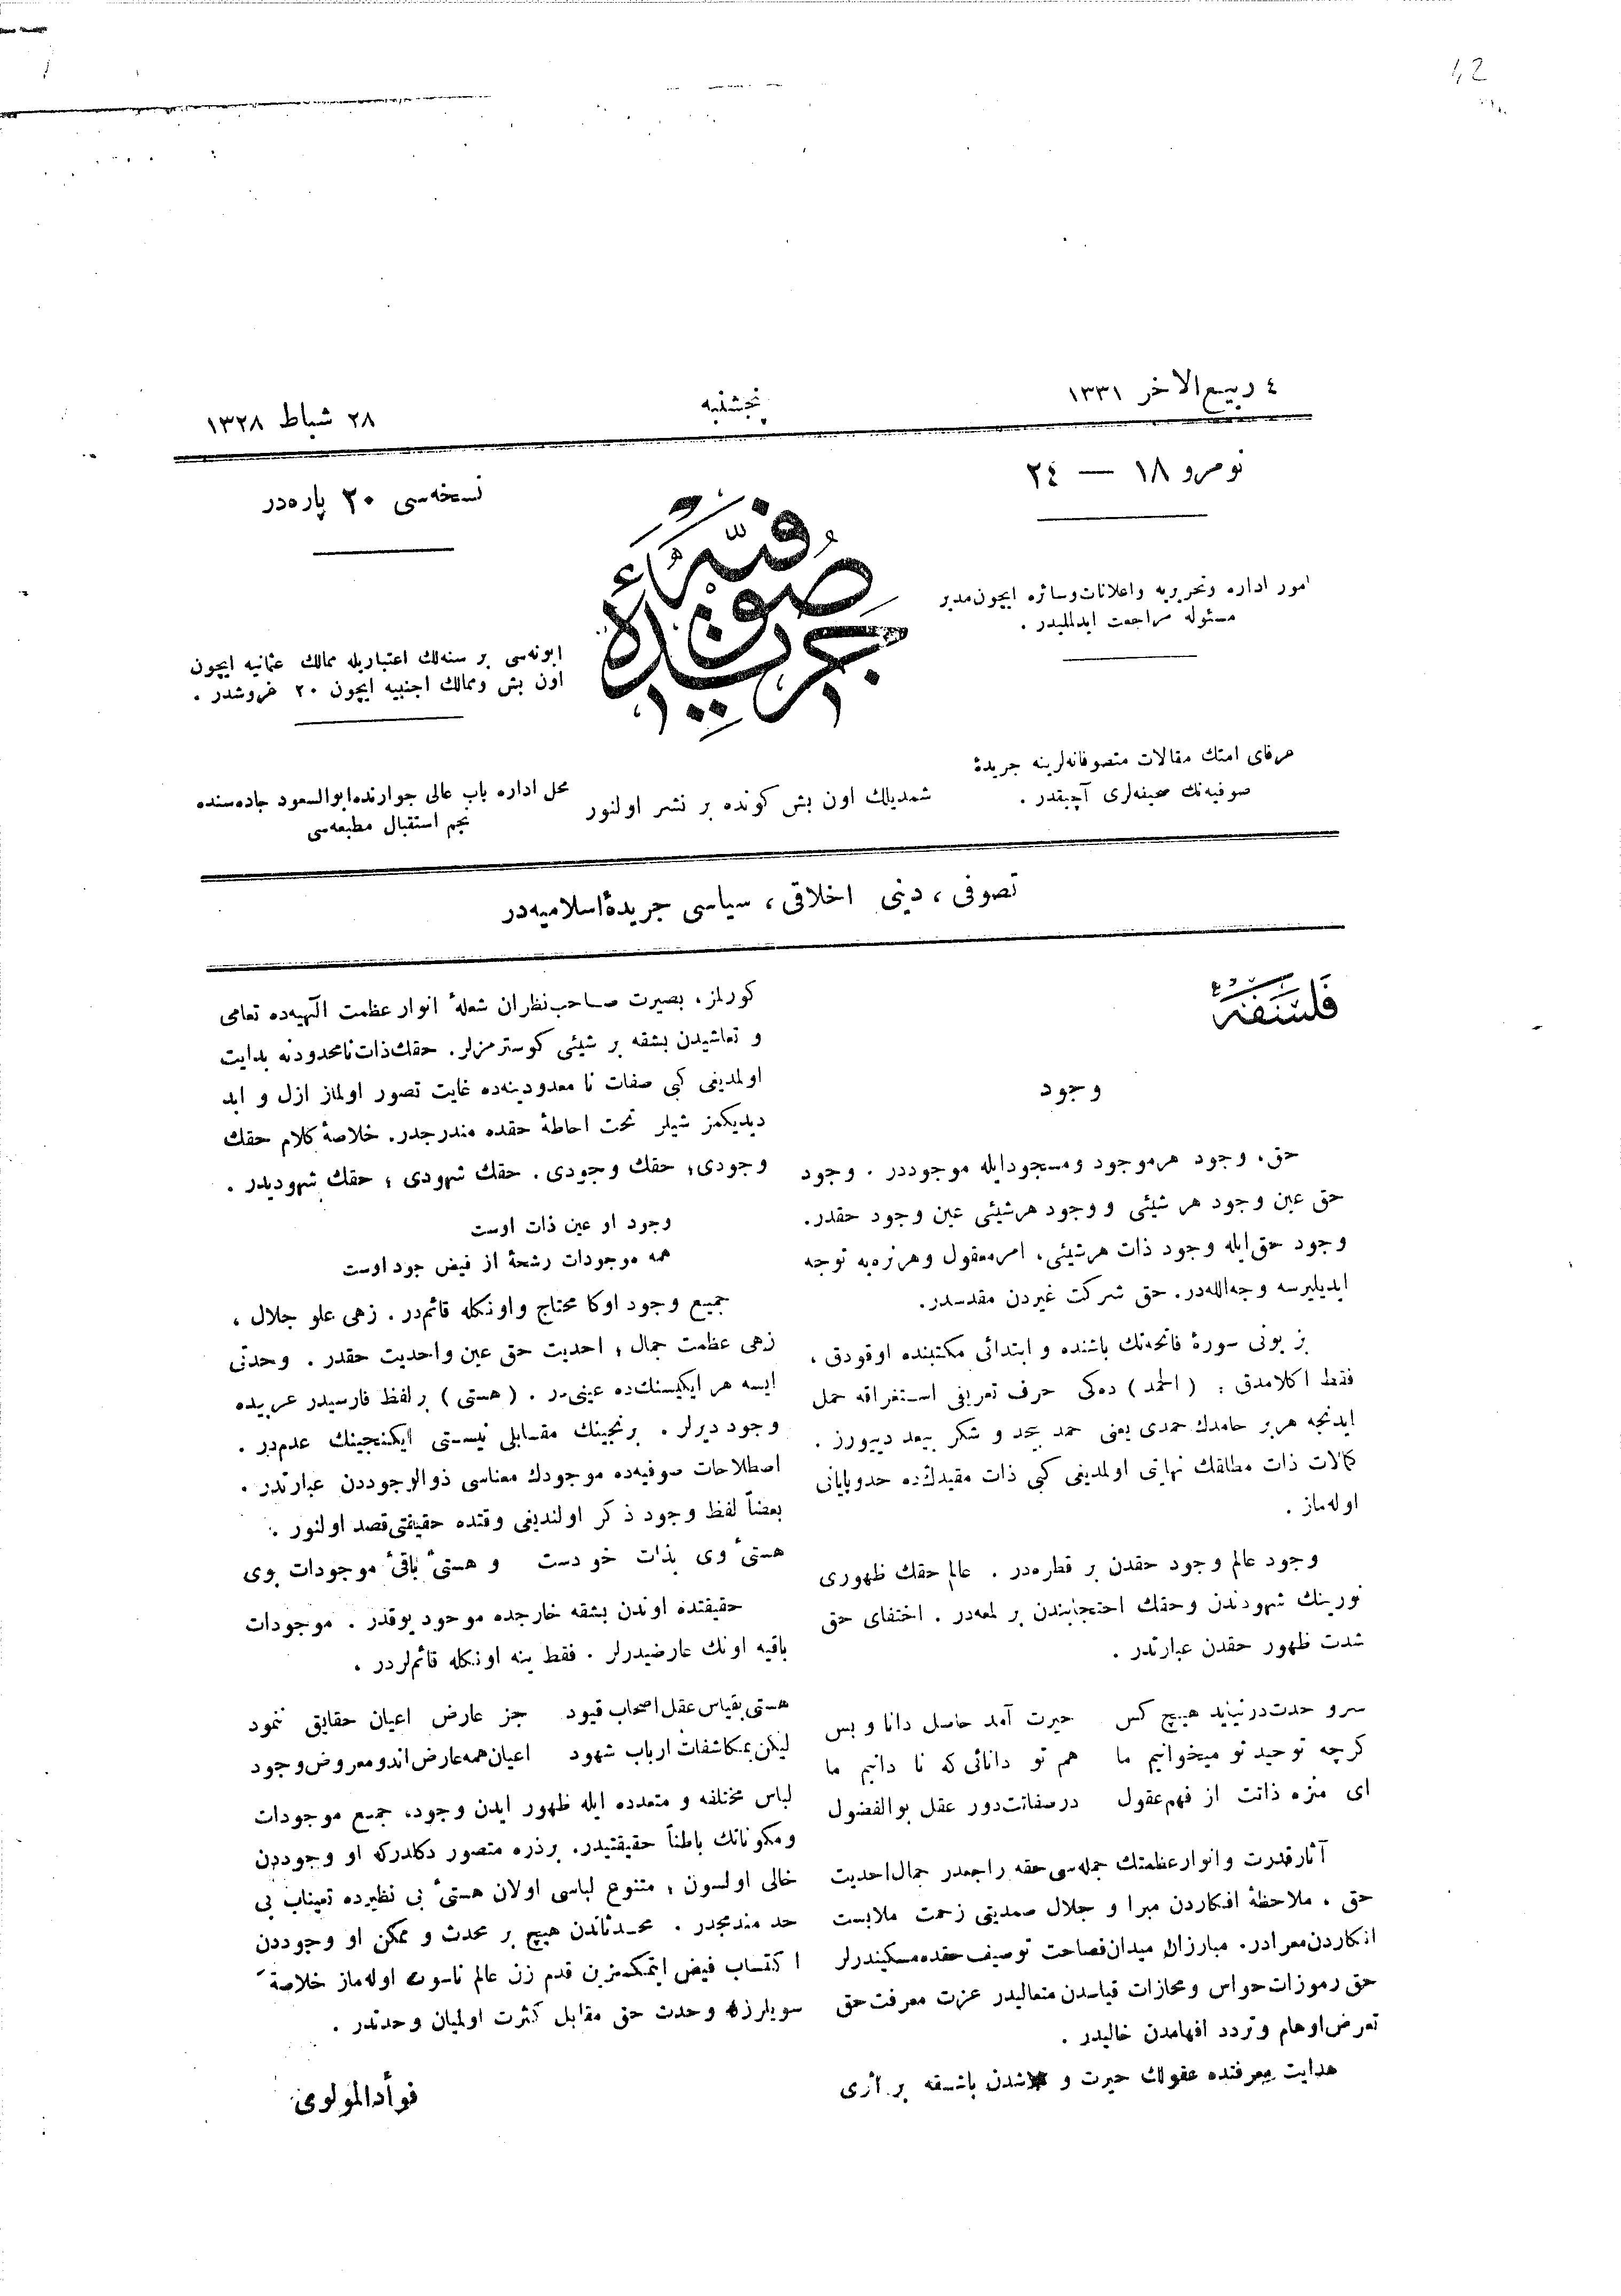 42
٤ ربيع الاخر ١٣٣١
پنجشنبه
٢٨ شباط ١٣٢٨
نومرو ١٨ — ٢٤
نسخه‌سی ٢٠ پاره‌در
جريدۀ صوفيه
امور اداره وتحريريه واعلانات وسائره ايچون مدير
مسئوله مراجعت ايدلمليدر .
ابونه‌سی بر سنه‌لك اعتباريله ممالك عثمانيه ايچون
اون بش وممالك اجنبيه ايچون ٢٠ غروشدر .
عرفای امتك مقالات متصوفانه‌لرينه جريدۀ
صوفيه‌نك صحيفه‌لری آچيقدر .
شمديلك اون بش كونده بر نشر اولنور
محل اداره باب عالی جوارنده ابوالسعود جاده‌سنده
نجم استقبال مطبعه‌سی
تصوفی ، دينی اخلاقی ، سياسی جريدۀ اسلاميه‌در
فلسفه
وجود
حق، وجود هرموجود ومسجود ايله موجوددر . وجود
حق عين وجود هر شيئی و وجود هرشيئی عين وجود حقدر.
وجود حق ايله وجود ذات هرشيئی، امرمعقول وهرنره‌يه توجه
ايديليرسه وجه‌الله‌در. حق شركت غيردن مقدسدر.
بز بونی سورۀ فاتحه‌نك باشنده و ابتدائی مكتبنده اوقودق ،
فقط اكلامدق : ( الحمد ) ده‌كی حرف تعريفی استغراقه حمل
ايدنجه هربر حامدك حمدی يعنی حمد بيحد و شكر بيعد دييورز .
كمالات ذات مطلقك نهايتی اولمديغی كبی ذات مقيدك‌ده حدوپايانی
اوله‌ماز .
وجود عالم وجود حقدن بر قطره‌در . عالم حقك ظهوری
نورينك شهودندن وحقك احتجابندن بر لمعه‌در . اختفای حق
شدت ظهور حقدن عبارتدر .
سرو حدت درنيايد هيچ كس حيرت آمد حاصل دانا و بس
كرچه توحيد تو ميخوانيم ما هم تو دانائی كه نا دانيم ما
ای منزه ذاتت از فهم عقول درصفاتت دور عقل بوالفضول
آثار قدرت وانوار عظمتك جمله‌سی حقه راجعدر جمال احديت
حق ، ملاحظۀ افكاردن مبرا و جلال صمديتی زحمت ملابست
انكاردن معرادر. مبارزان ميدان فصاحت توصيف حقده مسكيندرلر
حق رموزات حواس ومجازات قياسدن متعاليدر عزت معرفت حق
تعرض اوهام وتردد افهامدن خاليدر .
هدايت معرفتده عقولك حيرت و باشقه بر اثری
كورلمز، بصيرت صاحب نظران شعلۀ انوار عظمت الٓهيه‌ده تعامی
و تعاشيدن بشقه بر شيئی كوسترمزلر. حقك ذات نامحدودنه بدايت
اولمديغی كبی صفات نا معدودينه‌ده غايت تصور اولماز ازل و ابد
ديديكمز شيلر تحت احاطۀ حقده مندرجدر. خلاصۀ كلام حقك
وجودی؛ حقك وجودی. حقك شهودی ؛ حقك شهوديدر .
وجود او عين ذات اوست
همه موجودات رشحۀ از فيض جود اوست
جميع وجود اوكا محتاج و اونكله قائم‌در . زهی علو جلال ،
زهی عظمت جمال ؛ احديت حق عين واحديت حقدر . وحدتی
ايسه هر ايكيسنك‌ده عينی‌در . ( هستی ) بر لفظ فارسيدر عربيده
وجود ديرلر . برنجينك مقابلی نيستی ايكنجينك عدم‌در .
اصطلاحات صوفيه‌ده موجودك معناسی ذوالوجوددن عبارتدر .
بعضاً لفظ وجود ذكر اولنديغی وقتده حقيقتی قصد اولنور .
هستیٔ وی بذات خودست و هستیٔ باقیٔ موجودات بوی
حقيقتده اوندن بشقه خارجده موجود يوقدر . موجودات
باقيه اونك عارضيدرلر . فقط ينه اونكله قائم‌لردر .
هستی بقياس عقل اصحاب قيود جز عارض اعيان حقايق ننمود
ليكن بمكاشفات ارباب شهود اعيان همه عارض اندومعروض وجود
لباس مختلفه و متعدده ايله ظهور ايدن وجود، جميع موجودات
ومكوناتك باطناً حقيقتيدر. برذره متصور دكلدركه او وجوددن
خالی اولسون ؛ متنوع لباسی اولان هستیٔ بی نظيرده تعينات بی
حد مندمجدر . محدثاندن هيچ بر محدث و ممكن او وجوددن
اكتساب فيض ايتمكسزين قدم زن عالم ناسوت اوله‌ماز خلاصةً
سويلرزكه وحدت حق مقابل كثرت اولميان وحدتدر .
فوأد المولوی